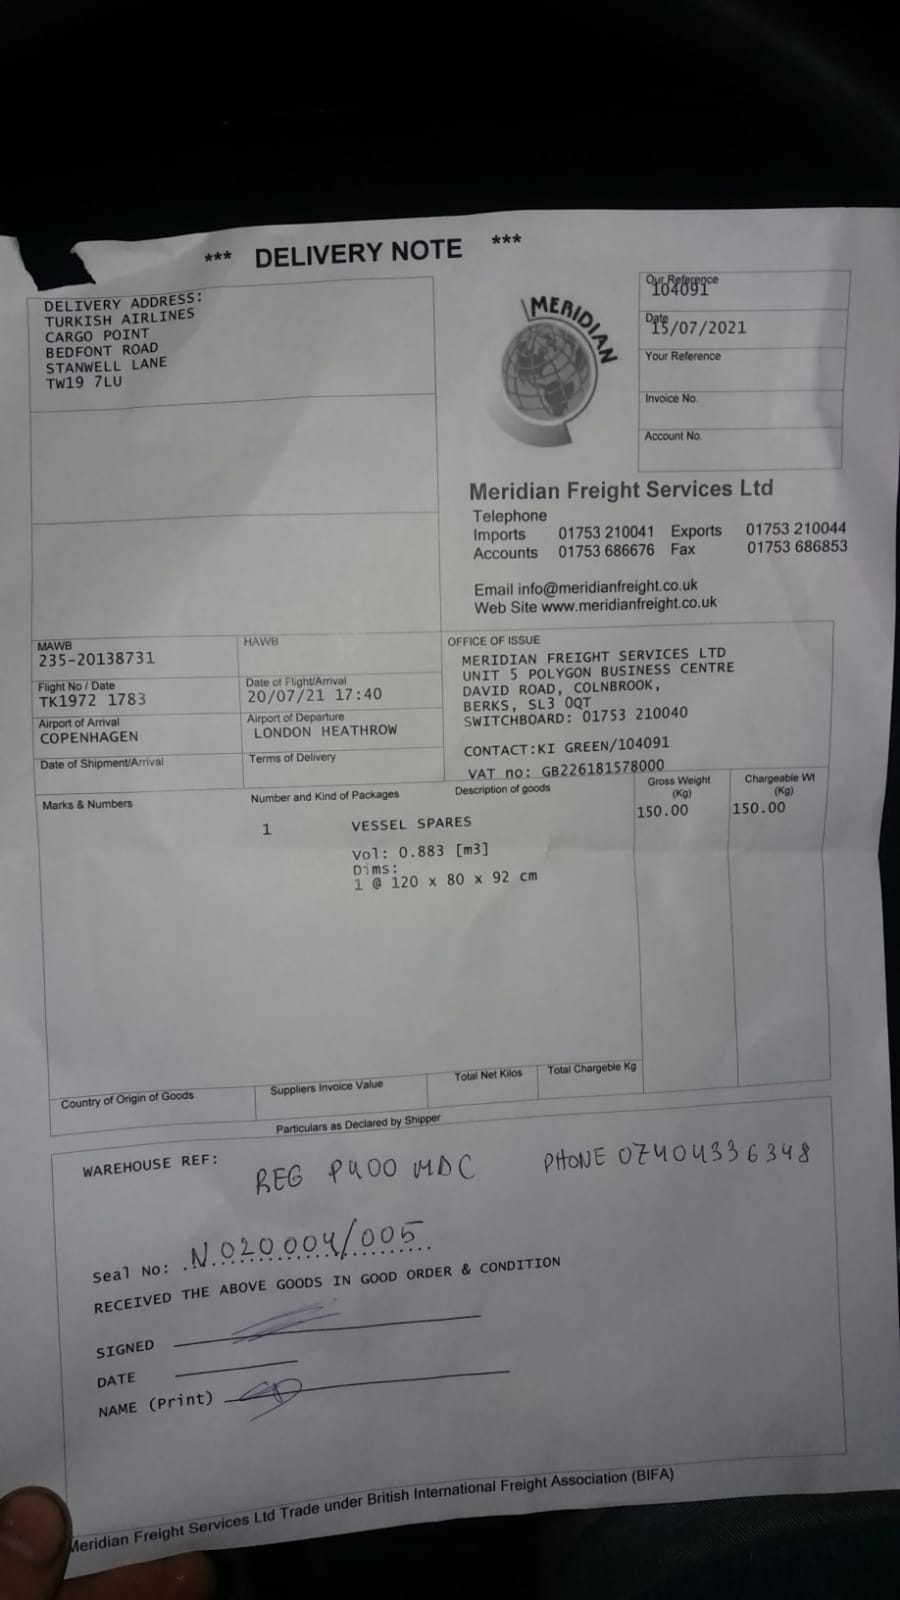 *** DELIVERY NOTE ***
DELIVERY ADDRESS:
TURKISH AIRLINES
CARGO POINT
BEDFONT ROAD
STANWELL LANE
TW19 7LU
MERIDIAN
Our Reference
104091
Date
15/07/2021
Your Reference
Invoice No.
Account No.
Meridian Freight Services Ltd
Telephone
Imports 01753 210041 Exports 01753 210044
Accounts 01753 686676 Fax 01753 686853
Email info@meridianfreight.co.uk
Web Site www.meridianfreight.co.uk
MAWB
235-20138731
HAWB
Flight No / Date
TK1972 1783
Date of Flight/Arrival
20/07/21 17:40
Airport of Arrival
COPENHAGEN
Airport of Departure
LONDON HEATHROW
Date of Shipment/Arrival
Terms of Delivery
OFFICE OF ISSUE
MERIDIAN FREIGHT SERVICES LTD
UNIT 5 POLYGON BUSINESS CENTRE
DAVID ROAD, COLNBROOK,
BERKS, SL3 0QT
SWITCHBOARD: 01753 210040
CONTACT:KI GREEN/104091
VAT no: GB226181578000
Marks & Numbers
Number and Kind of Packages
Description of goods
Gross Weight
(Kg)
Chargeable Wt
(Kg)
1 VESSEL SPARES 150.00 150.00
Vol: 0.883 [m3]
Dims:
1 @ 120 x 80 x 92 cm
Country of Origin of Goods
Suppliers Invoice Value
Total Net Kilos
Total Chargeble Kg
Particulars as Declared by Shipper
WAREHOUSE REF:
REG P400 MDC PHONE 07404336348
Seal No: N.020004/005
RECEIVED THE ABOVE GOODS IN GOOD ORDER & CONDITION
SIGNED
DATE
NAME (Print)
Meridian Freight Services Ltd Trade under British International Freight Association (BIFA)